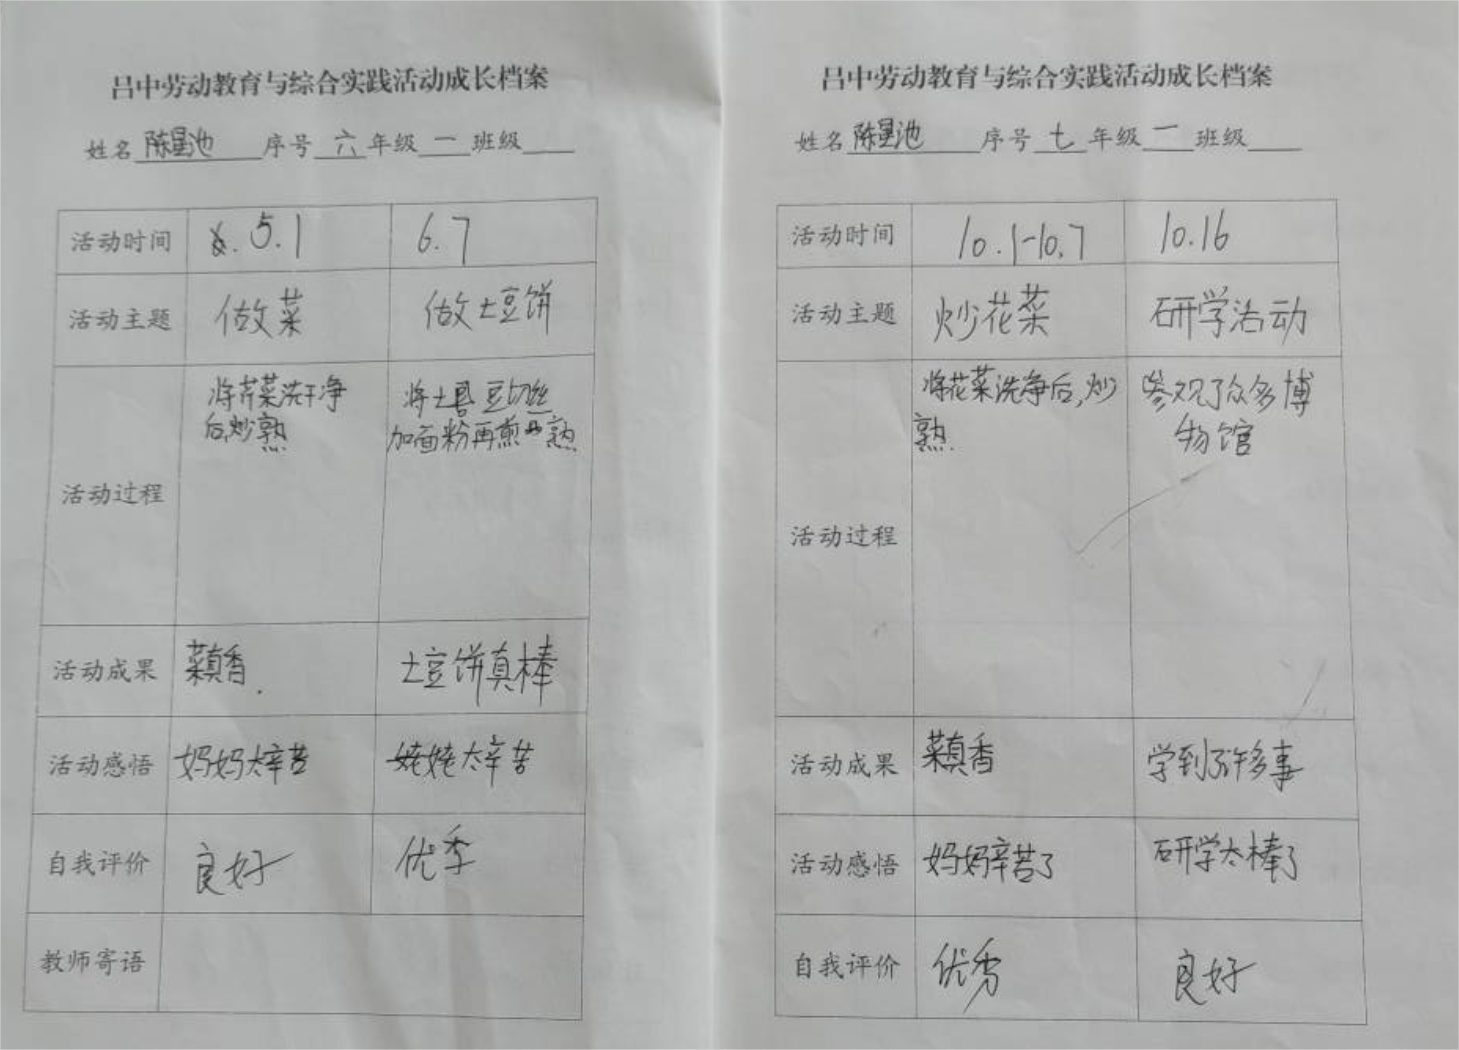 吕中劳动教育与综合实践活动成长档案
姓名 陈星池 序号 六 年级 一 班级
活动时间 5.1 6.7
活动主题 做菜 做土豆饼
活动过程
将芹菜洗干净
后,炒熟
将土豆切丝
加面粉再煎 熟
活动成果 菜真香. 土豆饼真棒
活动感悟 妈妈太辛苦 姥姥太辛苦
自我评价 良好 优季
教师寄语
吕中劳动教育与综合实践活动成长档案
姓名 陈星池 序号 七 年级 一 班级
活动时间 10.1-10.7 10.16
活动主题 炒花菜 研学活动
活动过程
将花菜洗净后,炒
熟.
参观了众多博
物馆
活动成果 菜真香 学到了许多事
活动感悟 妈妈辛苦了 研学太棒了
自我评价 优秀 良好